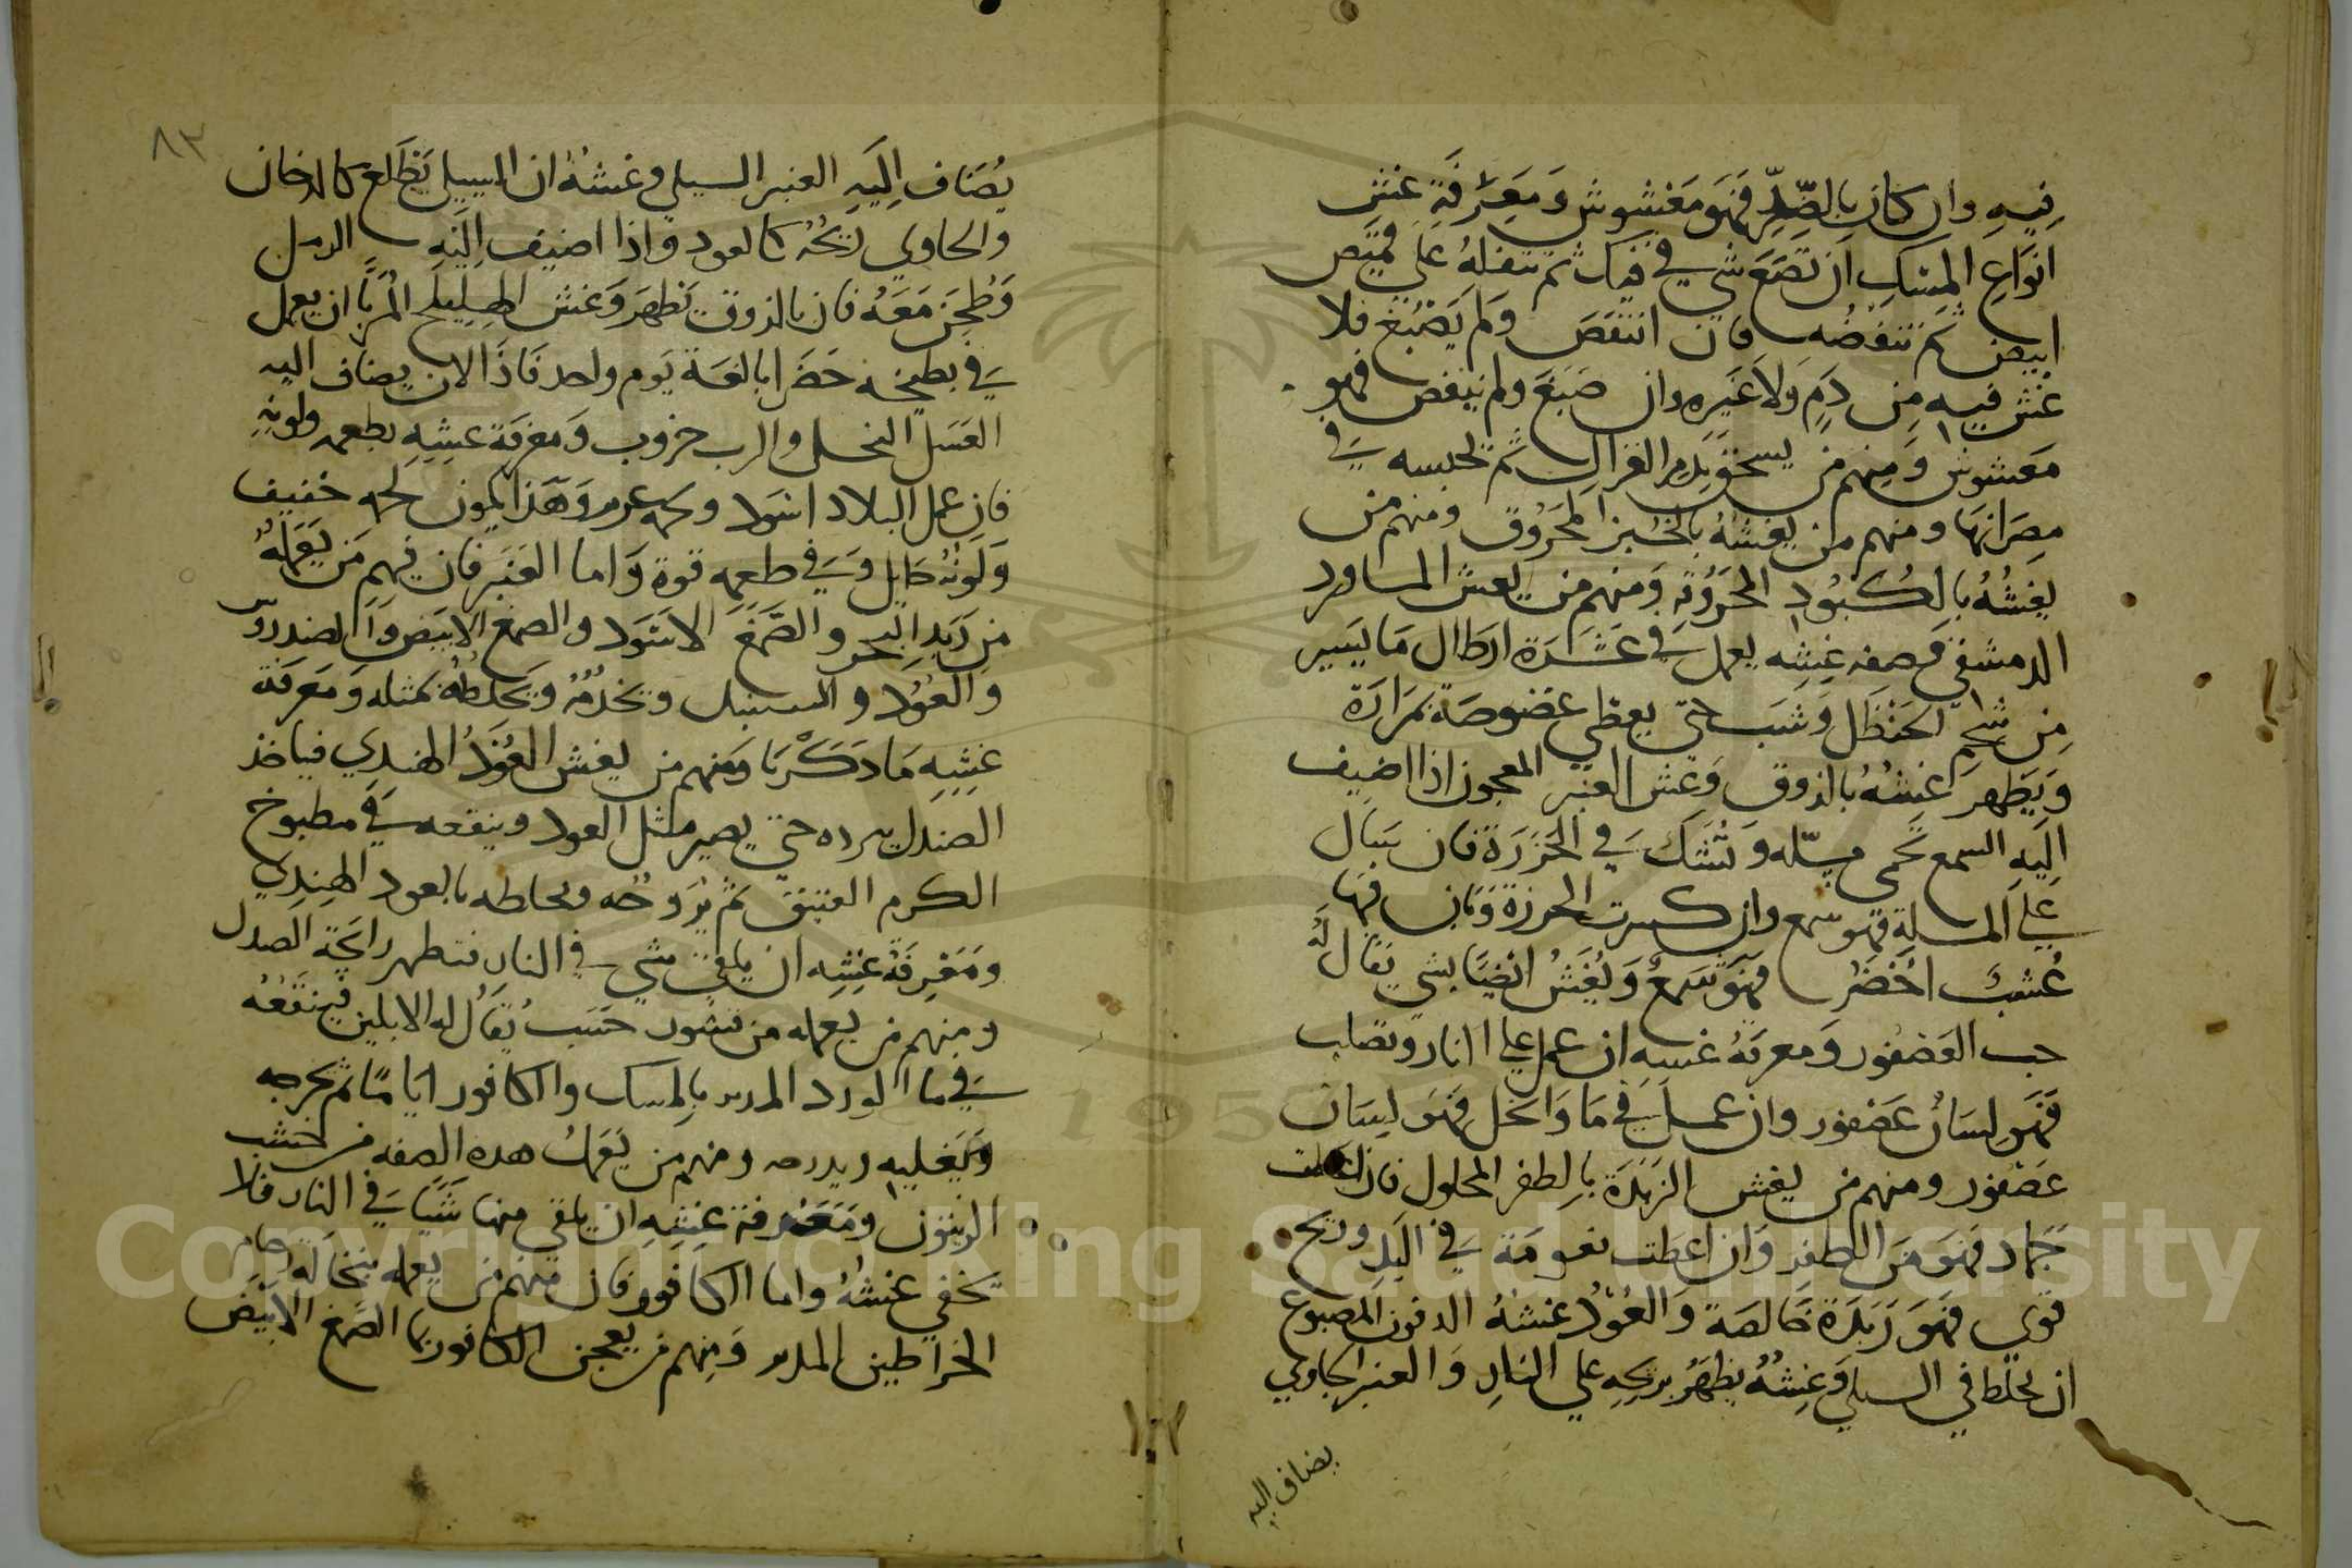 فِيهِ وان كان بالضِّدِّ فَهَو مَغشوش وَمَعِرْفَةِ غش
انوَاعِ المِسْكِ ان تضَع شي في فيك ثم تتفله على قميص
ابيض ثم تنفضُه فان انتفَض ولم يَصْبُغ فلا
غش فيهِ مِن دَمٍ وَلاَ غَيرِهِ وان صَبَغَ ولم ينفض فهو
مَغشوش وَمِنهم من يسحق بدم الغزال ثم تحبسه في
مِصَرَانهَا ومنهم من يغشهُ بالخُبز المحَرُوق ومنهم من
يغِشُهُ بالكُبُودِ المحَرُوقةِ وَمنهم من يغش الماورد
الدمشقي وَصفه غِشِه يعمل في عَشَرَة ارطال مَا يَسير
مِن شحم الحَنظَل وَشَبِ حتي يعطي عفوصَة بمَرَارَة
وَيَظهرَ غِشهُ بالذوق وَغش العنبر المعجون اذا اضيف
اِلَيهِ الشمع تحمى مسلّه وَتُشَك في الخرَزَة فان سَال
على المسلةِ فهو شمع وان كسرت الخرزة وَبان فيها
عُشبَ اخَضَر فهَو شمع وَيُغَشُ ايضًا بشي يقال لَهُ
حب العَصفور وَمعرفةُ غشه ان عمل على النار وتصلب
فَهَو لسَان عَصفور وان عمل في مَا وَانحَل فهَو ليسَان
عَصفور ومنهم من يغش الزَبَدَة بالظفر المحلول فان اعطت
جماد فهَو مَن الظفِر وَان اعطت نعومَة في اليَدِ وريح
قوى فهَوَ زَبَدَة خَالصَة وَالعُوْدُ غشهُ الدفون المصبوغ
ان يخلط في السيلي وَغِشهُ يظهَرُ بريحِهِ على النارِ وَالعنبر الجاوي
يضاف اليه
٨٣
يُضَاف اِلَيهِ العنبر السيلي وغشهُ ان السيلي يَطَلع كالدخان
والجاوي ريحُهُ كالعود واذا اضيف اِلَيهِ الرمل
وَطحِنَ مَعَهُ فان بالذوق يَظهَر وَغش الهليلج المُرَبَّا ان يعمل
في بطيخه خَضَرا بالغَة يَوم واحد فاذَا الان يضاف اليه
العَسَل النحل والرب خروب وَمعرفَة غشِهِ بطعمه ولونِهِ
فان عمل البلاد اسَود وَهَذا يكون لحمه خفيف
وَلَونُهُ حَايل وَفي طعمِهِ قوة وَاما العَنبَر فان فيهم مَن يَعَملهُ
مِن زَبَدِ البحر والصَّمَغ الاسَود والصمغ الابيَض وَالصندروس
وَالعُوْد والسنبل ويخدمُهُ ويَخلطُهُ بمثله وَمَعَرفَة
غشِهِ مَا ذَكَرْنَا وَمنهم من يغش العُوْدُ الهندِي فياخذ
الصندل يبرده حتي يصير مثل العود وينقعه في مطبوخ
الكرم العتيق ثم يُرَوحُه ويخلطه بالعود الهِندِي
وَمَعَرِفَة غشِه ان يلقى شي في النارِ فتظهر رايحَة الصندل
ومنهم من يعمله من قشور خَشَب يُقَالُ له الابلين فينقَعُهُ
في ما الورد المدبر بالمسك والكافور ايامًا ثم يخرجه
وَيَغليهِ ويدرجه ومنهم من يَعَمل هذه الصِفه من خشب
الزيتون ومَعَرفة غشِهِ ان يلقي منها شَيَا في النار فلا
يَخفي غشهُ واما الكافور فان منهم من يعمله بنخالة
الخراطين المدبر وَمِنهم من يعجن الكافور بما الصَمغ الابيَض